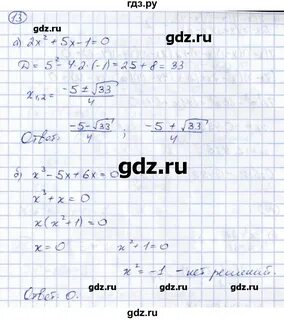 гдз.ру
13
а) 2x² + 5x - 1 = 0
gdz.ru
D = 5² - 4·2·(-1) = 25 + 8 = 33
x₁,₂ = (-5 ± √33)/4
Ответ: (-5-√33)/4 ; (-5+√33)/4
gdz.ru
б) x³ - 5x + 6x = 0
x³ + x = 0
x(x² + 1) = 0
x = 0 x² + 1 = 0
x² = -1 - нет решений.
Ответ: 0.
gdz.ru gdz.ru